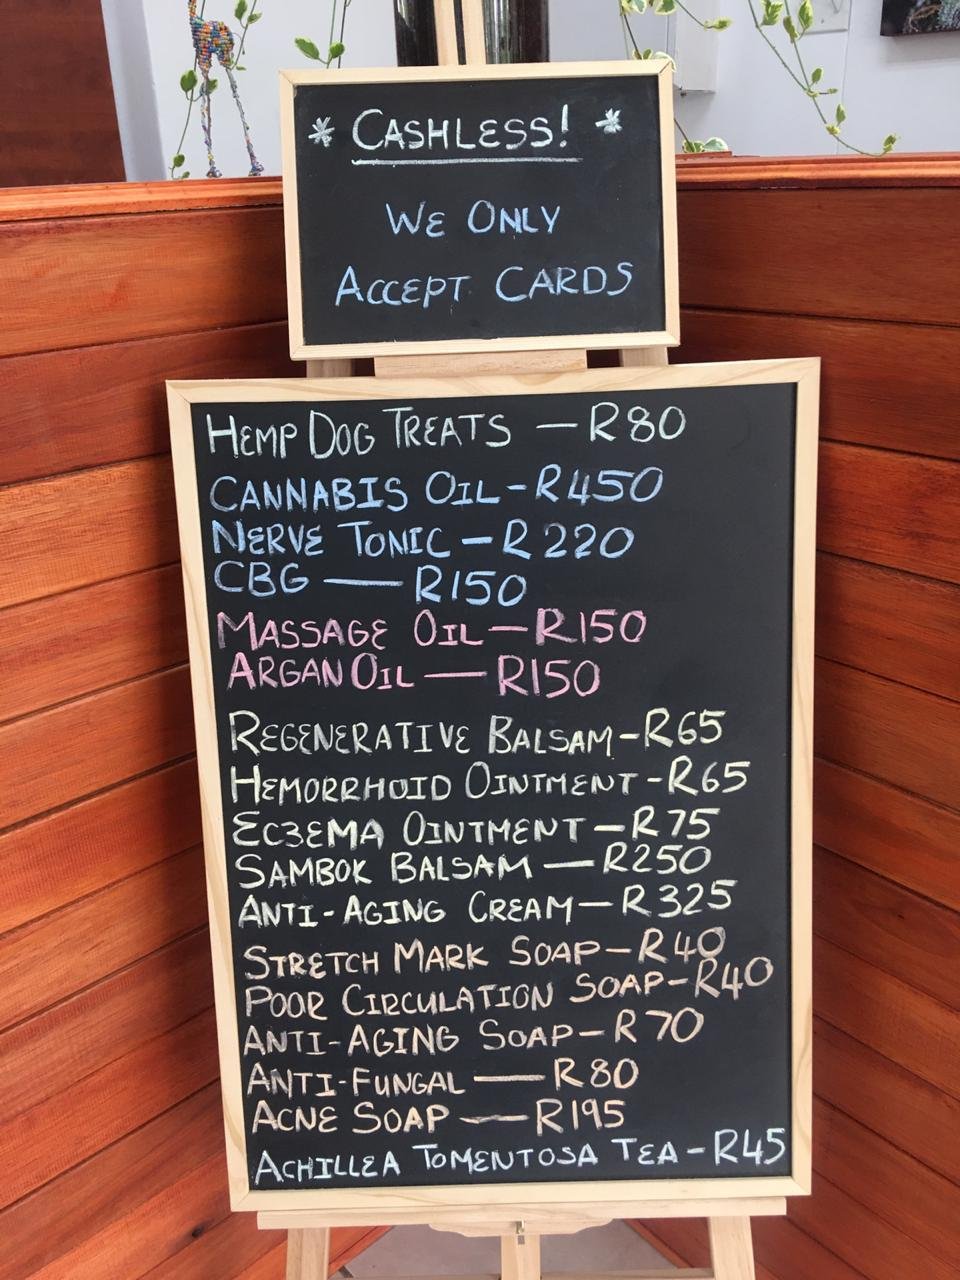 * CASHLESS! *
WE ONLY
ACCEPT CARDS
HEMP DOG TREATS — R80
CANNABIS OIL - R450
NERVE TONIC — R220
CBG — R150
MASSAGE OIL — R150
ARGAN OIL — R150
REGENERATIVE BALSAM - R65
HEMORRHOID OINTMENT - R65
ECZEMA OINTMENT — R75
SAMBOK BALSAM — R250
ANTI-AGING CREAM — R325
STRETCH MARK SOAP — R40
POOR CIRCULATION SOAP - R40
ANTI-AGING SOAP — R70
ANTI-FUNGAL — R80
ACNE SOAP — R195
ACHILLEA TOMENTOSA TEA - R45